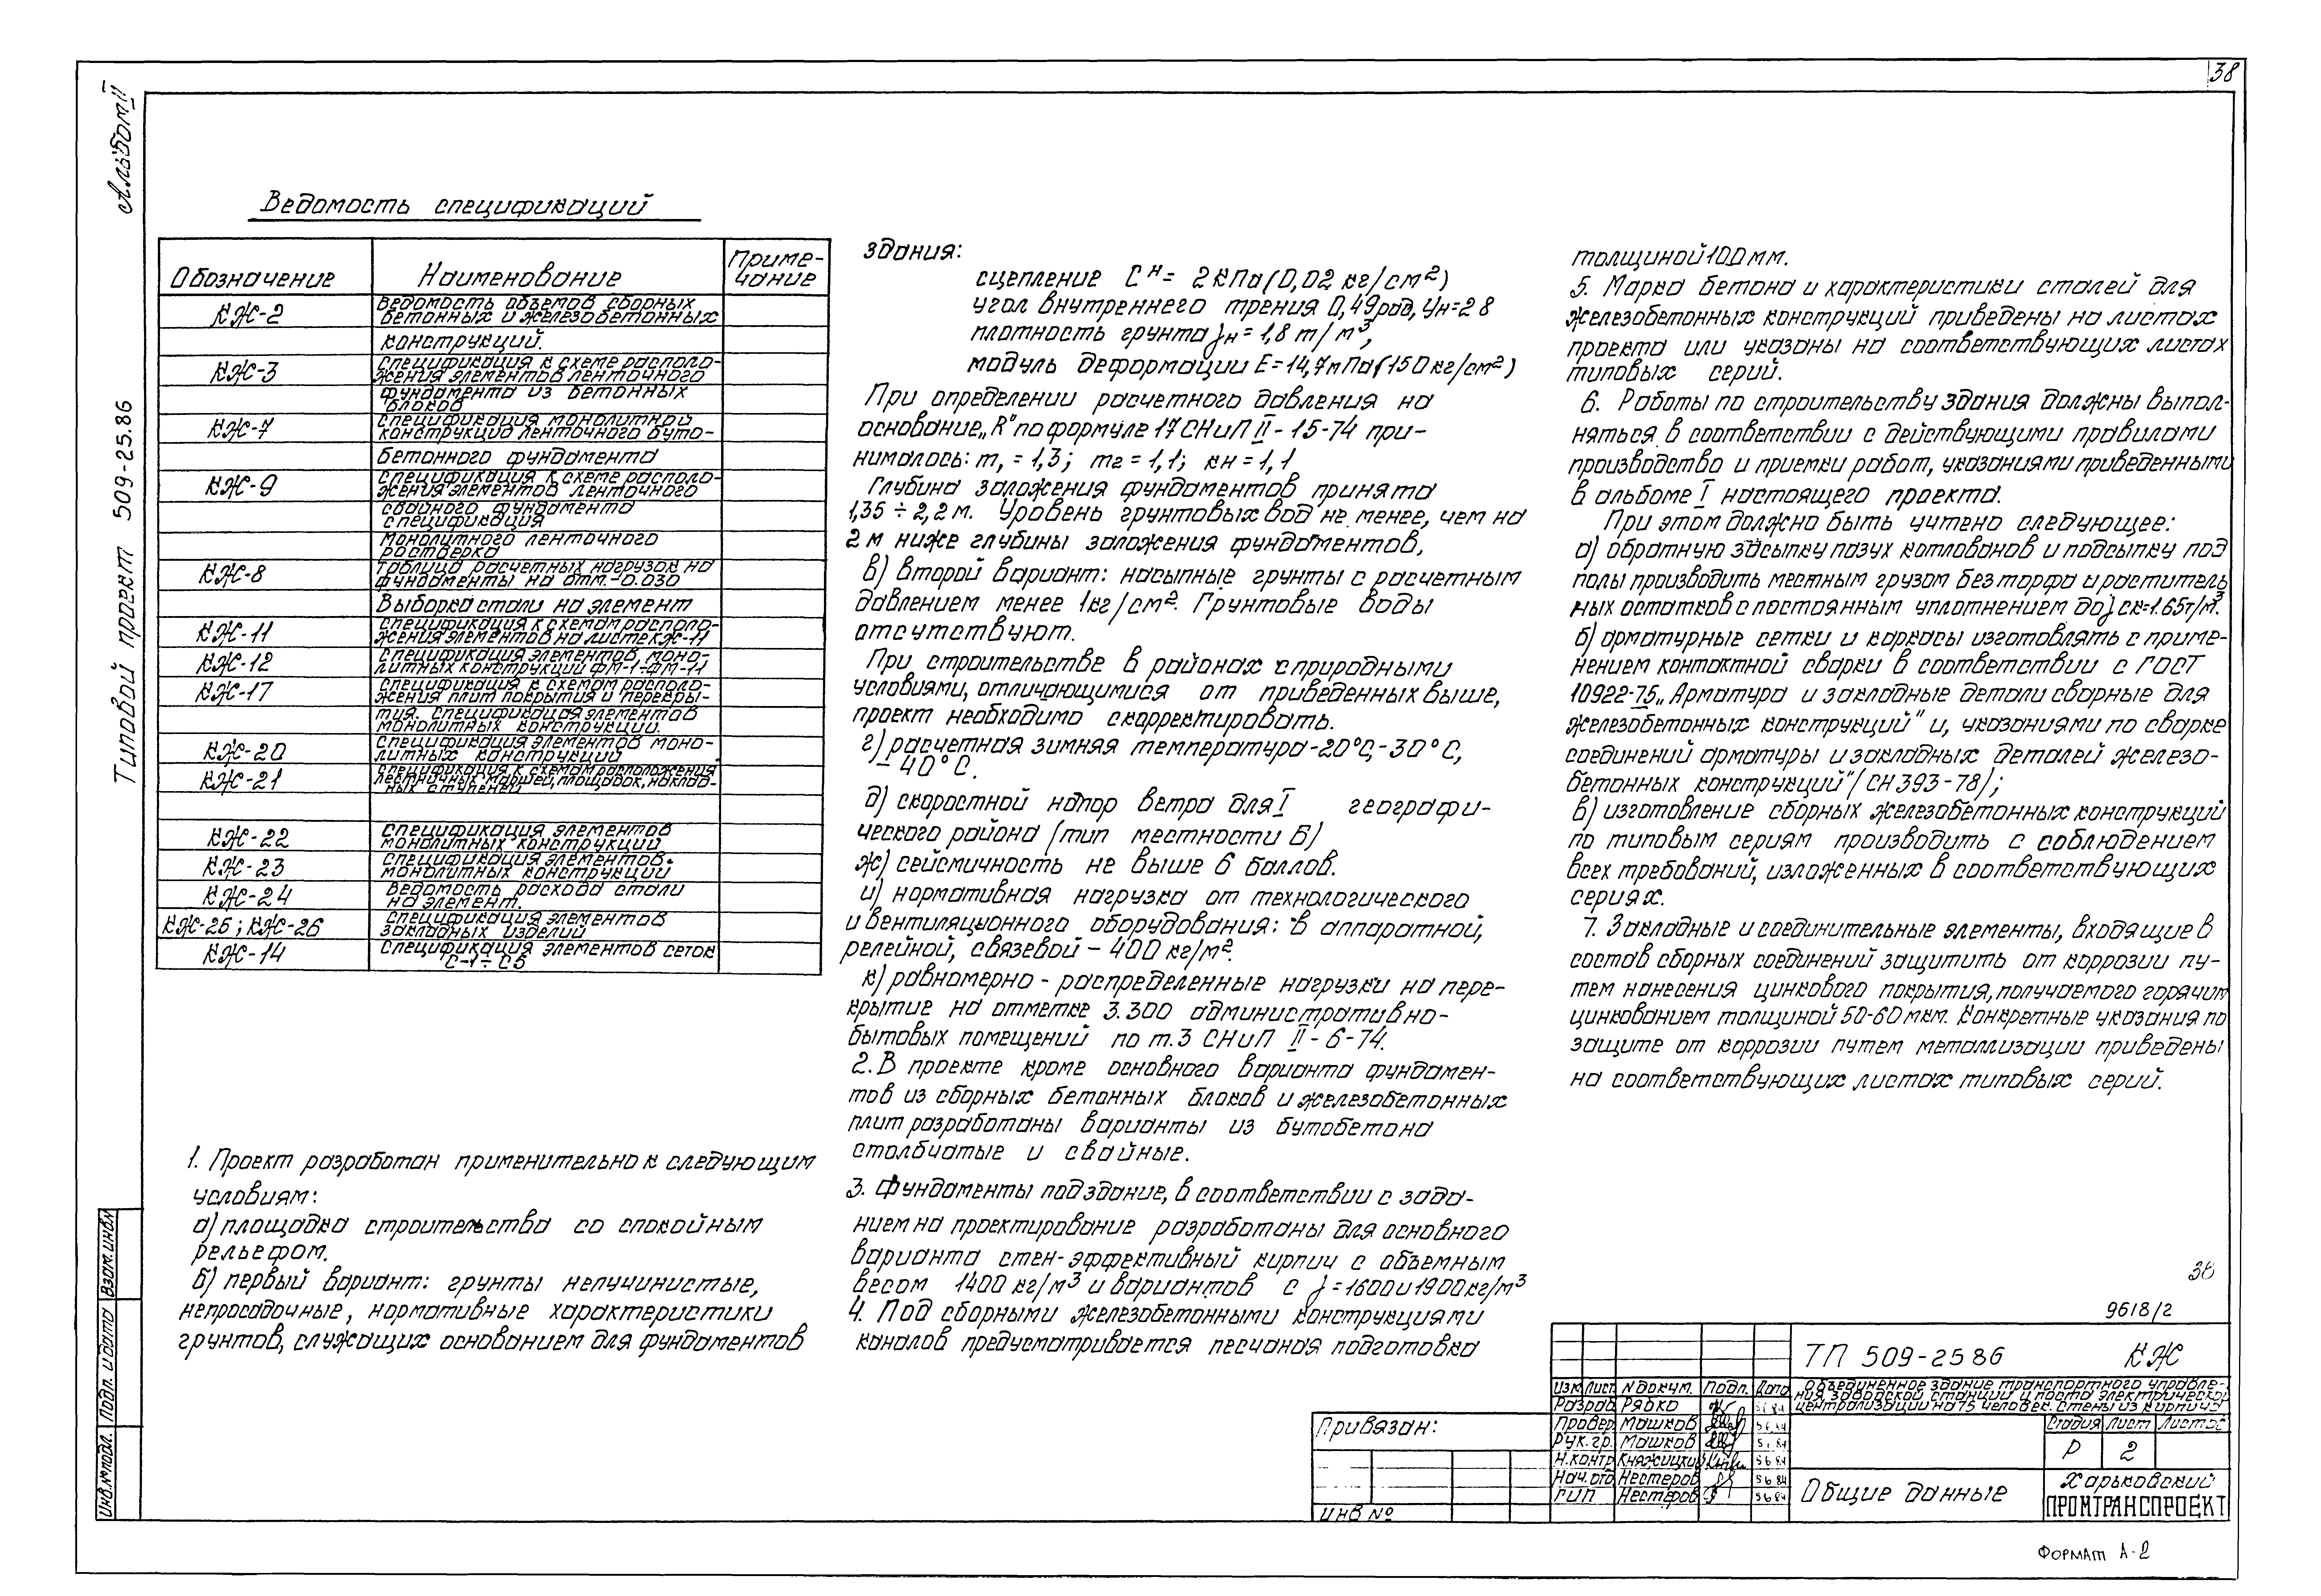 38
Альбом II
Типовой проект 509-25.86
Ведомость спецификаций
Обозначение Наименование Приме-
чание
КЖ-2 Ведомость объемов сборных
бетонных и железобетонных
конструкций.
КЖ-3 Спецификация к схеме располо-
жения элементов ленточного
фундамента из бетонных
блоков
КЖ-7 Спецификация монолитной
конструкции ленточного буто-
бетонного фундамента
КЖ-9 Спецификация к схеме располо-
жения элементов ленточного
свайного фундамента
спецификация
монолитного ленточного
ростверка
КЖ-8 Таблица расчетных нагрузок на
фундаменты на отм.-0.030
Выборка стали на элемент
КЖ-11 Спецификация к схемам располо-
жения элементов на листе КЖ-11
КЖ-12 Спецификация элементов моно-
литных конструкций ФМ-1÷ФМ-11
КЖ-17 Спецификация к схемам располо-
жения плит покрытия и перекры-
тия. Спецификация элементов
монолитных конструкции.
КЖ-20 Спецификация элементов моно-
литных конструкций
КЖ-21 Спецификация к схемам расположения
лестничных маршей, площадок, наклад-
ных ступеней
КЖ-22 Спецификация элементов
монолитных конструкций
КЖ-23 Спецификация элементов
монолитных конструкции
КЖ-24 Ведомость расхода стали
на элемент.
КЖ-25; КЖ-26 Спецификация элементов
закладных изделий
КЖ-14 Спецификация элементов сеток
С-1÷С5
1. Проект разработан применительно к следующим
условиям:
а) площадка строительства со спокойным
рельефом.
б) первый вариант: грунты непучинистые,
непросадочные, нормативные характеристики
грунтов, служащих основанием для фундаментов
здания:
сцепление Cн = 2кПа (0,02 кг/см²)
угол внутреннего трения 0,49рад, φн=28
плотность грунта γн = 1,8 т/м³,
модуль деформации Е=14,7мПа(150кг/см²)
При определении расчетного давления на
основание „R" по формуле 17 СНиП II-15-74 при-
нималось: m₁ = 1,3; m₂ = 1,1; кн = 1,1
Глубина заложения фундаментов принята
1,35 ÷ 2,2 м. Уровень грунтовых вод не менее, чем на
2 м ниже глубины заложения фундаментов,
в) второй вариант: насыпные грунты с расчетным
давлением менее 1кг/см². Грунтовые воды
отсутствуют.
При строительстве в районах с природными
условиями, отличающимися от приведенных выше,
проект необходимо скорректировать.
г) расчетная зимняя температура-20°С,-30°С,
-40°С.
д) скоростной напор ветра для I географи-
ческого района (тип местности Б)
ж) сейсмичность не выше 6 баллов.
и) нормативная нагрузка от технологического
и вентиляционного оборудования: в аппаратной,
релейной, связевой – 400 кг/м².
к) равномерно - распределенные нагрузки на пере-
крытие на отметке 3.300 административно-
бытовых помещений по т.3 СНиП II - 6-74.
2. В проекте кроме основного варианта фундамен-
тов из сборных бетонных блоков и железобетонных
плит разработаны варианты из бутобетона
столбчатые и свайные.
3. Фундаменты под здание, в соответствии с зада-
нием на проектирование разработаны для основного
варианта стен-эффективный кирпич с объемным
весом 1400 кг/м³ и вариантов с γ = 1600 и 1900кг/м³
4. Под сборными железобетонными конструкциями
каналов предусматривается песчаная подготовка
толщиной 100мм.
5. Марка бетона и характеристики сталей для
железобетонных конструкций приведены на листах
проекта или указаны на соответствующих листах
типовых серий.
6. Работы по строительству здания должны выпол-
няться в соответствии с действующими правилами
производства и приемки работ, указаниями приведенными
в альбоме I настоящего проекта.
При этом должно быть учтено следующее:
а) обратную засыпку пазух котлованов и подсыпку под
полы производить местным грузом без торфа и раститель
ных остатков с постоянным уплотнением до γск=1.65т/м³.
б) арматурные сетки и каркасы изготовлять с приме-
нением контактной сварки в соответствии с ГОСТ
10922-75 „Арматура и закладные детали сварные для
железобетонных конструкций" и, указаниями по сварке
соединений арматуры и закладных деталей железо-
бетонных конструкций" (СН 393-78);
в) изготовление сборных железобетонных конструкций
по типовым сериям производить с соблюдением
всех требований, изложенных в соответствующих
сериях.
7. Закладные и соединительные элементы, входящие в
состав сборных соединений защитить от коррозии пу-
тем нанесения цинкового покрытия, получаемого горячим
цинкованием толщиной 50-60 мкм. Конкретные указания по
защите от коррозии путем металлизации приведены
на соответствующих листах типовых серий.
38
9618/2
ТП 509-25 86 КЖ
Объединенное здание транспортного управле-
ния заводской станции и поста электрической
централизации на 75 человек. Стены из кирпича
Изм Лист N докум. Подп. Дата
Разраб Рябко 5.6.84
Провер Машков 5.6.84
Рук. гр. Машков 5.6.84
Н.контр Княжицкий 5 6 84
Нач. отд Нестеров 5 6 84
ГИП Нестеров 5 6 84
Стадия Лист Листов
Р 2
Общие данные
Харьковский
ПРОМТРАНСПРОЕКТ
Привязан:
ИНВ №
Инв.№подл. Подп. и дата Взам.инв№
Формат А-2